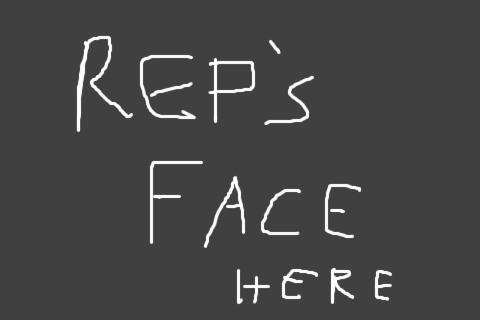 REP's
FACE
HERE